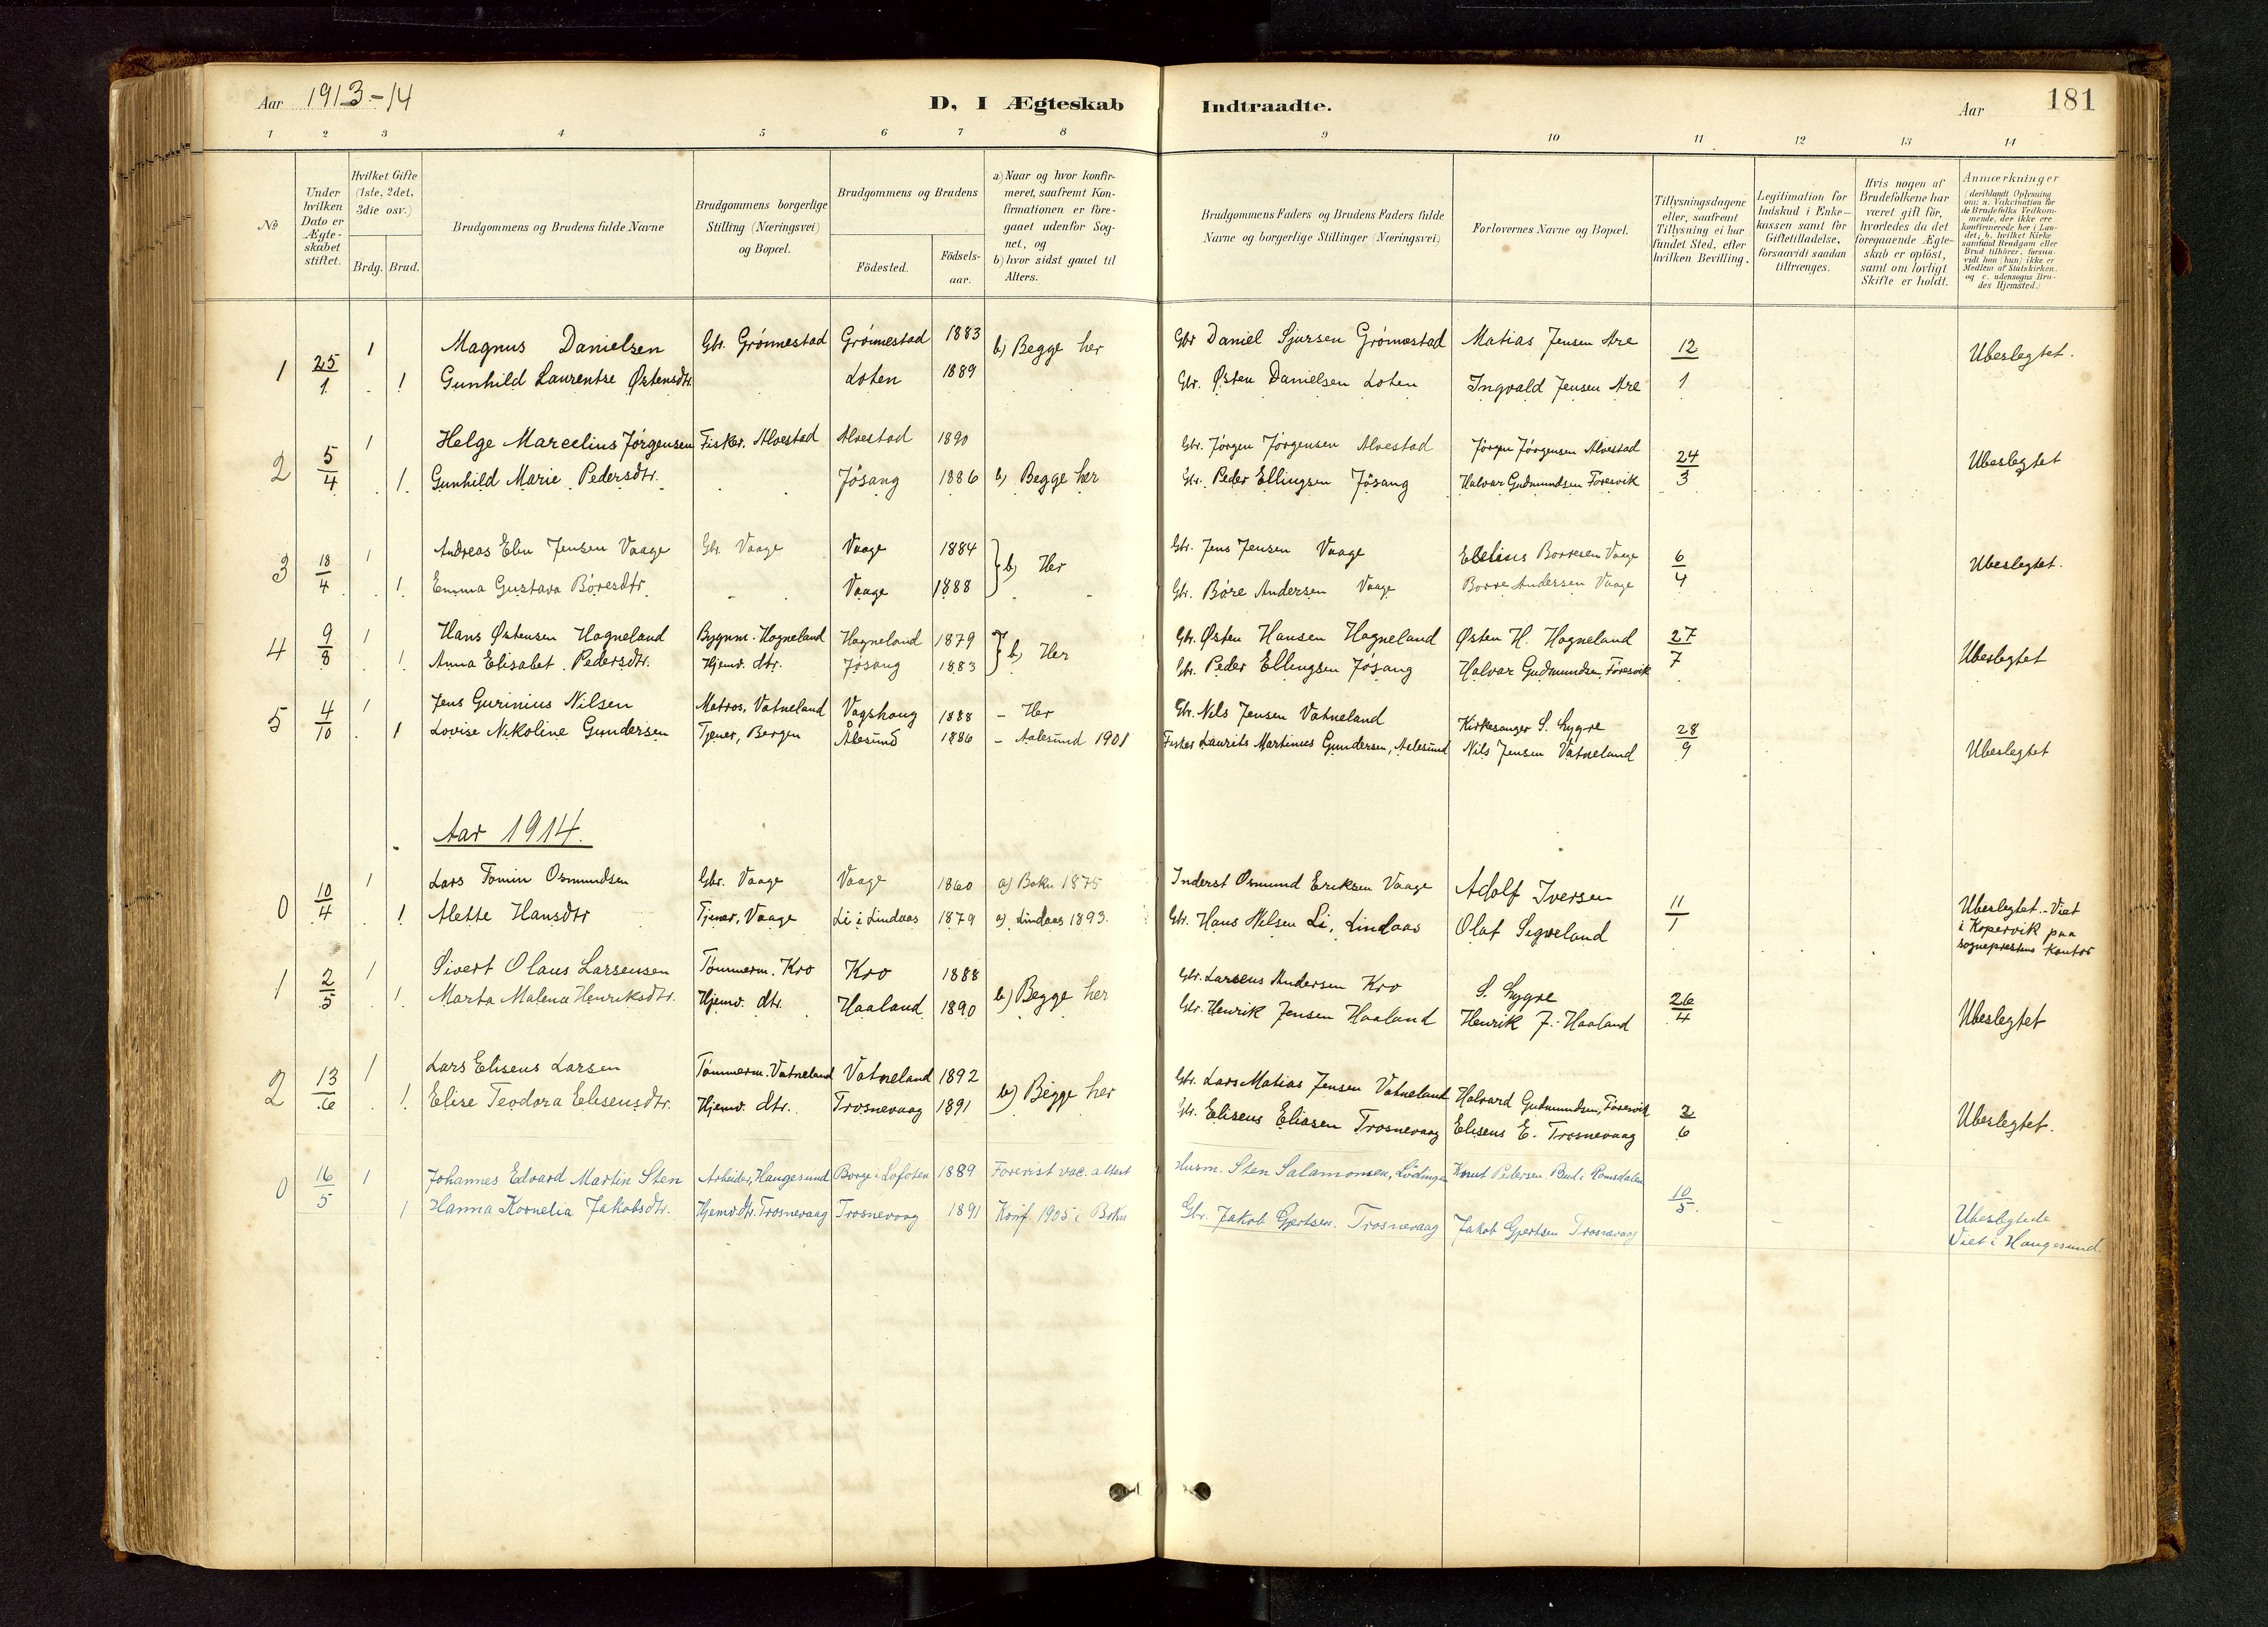 Aar 1913-14
D, I Ægteskab Indtraadte.
Aar 181
1 2 3 4 5 6 7 8 9 10 11 12 13 14
No
Under hvilken Dato er Ægteskabet stiftet.
Hvilket Gifte (1ste, 2det, 3die osv.)
Brdg. Brud.
Brudgommens og Brudens fulde Navne
Brudgommens borgerlige Stilling (Næringsvei) og Bopæl.
Brudgommens og Brudens
Födested. Födsels-aar.
a) Naar og hvor konfirmeret, saafremt Konfirmationen er foregaaet udenfor Sognet, og
b) hvor sidst gaaet til Alters.
Brudgommens Faders og Brudens Faders fulde Navne og borgerlige Stillinger (Næringsvei)
Forlovernes Navne og Bopæl.
Tillysningsdagene eller, saafremt Tillysning ei har fundet Sted, efter hvilken Bevilling.
Legitimation for Indskud i Enkekassen samt for Giftetilladelse, forsaavidt saadan tiltrænges.
Hvis nogen af Brudefolkene har været gift før, hvorledes da det foregaaende Ægteskab er oplöst, samt om lovligt Skifte er holdt.
Anmærkninger
(deriblandt Oplysning om: a. Vakcination for de Brudefolks Vedkommende, der ikke ere konfirmerede her i Landet; b. hvilket Kirkesamfund Brudgom eller Brud tilhörer, forsaavidt han (hun) ikke er Medlem af Statskirken, og c. udensogns Brudes Hjemsted.)
1 25/1 1 Magnus Danielsen Gbr. Grönnestad Grönnestad 1883 b) Begge her Gbr Daniel Sjursen Grönnestad Matias Jensen Are 12/1 Ubeslegtet.
1 Gunhild Laurentse Østensdtr. Loten 1889 Gbr. Østen Danielsen Loten Ingvald Jensen Are
2 5/4 1 Helge Marcelius Jörgensen Fisker. Alvestad Alvestad 1890 Gbr. Jörgen Jörgensen Alvestad Jörgen Jörgensen Alvestad 24/3 Ubeslegtet
1 Gunhild Marie Pedersdtr. Jösang 1886 b) Begge her Gbr. Peder Ellingsen Jösang Halvar Gudmundsen Föresvik
3 18/4 1 Andreas Elen Jensen Vaage Gbr. Vaage Vaage 1884 b) Her Gbr. Jens Jensen Vaage Ebelius Borresen Vaage 6/4 Ubeslegtet.
1 Emma Gustava Böresdtr. Vaage 1888 Gbr. Böre Andersen Vaage Borre Andersen Vaage
4 9/8 1 Hans Østensen Hogneland Bygnm. Hogneland Hogneland 1879 b) Her Gbr. Østen Hansen Hogneland Østen H. Hogneland 27/7 Ubeslegtet
1 Anna Elisabet Pedersdtr. Hjemv. dtr. Jösang 1883 Gbr. Peder Ellingsen Jösang Halvar Gudmundsen, Föresvik
5 4/10 1 Jens Gurinius Nilsen Matros, Vatneland Vagshaug 1888 - Her Gbr. Nils Jensen Vatneland Kirkesanger S. Lygre 28/9 Ubeslegtet
1 Lovise Nikoline Gundersen Tjener, Bergen Ålesund 1886 - Aalesund 1901 Fisker Laurits Martinus Gundersen, Aalesund Nils Jensen Vatneland
Aar 1914.
0 10/4 1 Lars Tomin Osmundsen Gbr. Vaage Vaage 1860 a) Bokn 1875 Inderst Osmund Eriksen Vaage Adolf Iversen 11/1 Ubeslegtet. - Viet
1 Alette Hansdtr Tjener, Vaage Li i Lindaas 1879 a) Lindaas 1893. Gbr. Hans Nilsen Li, Lindaas Olaf Segveland i Kopervik paa
sogneprestens kontor
1 2/5 1 Sivert Olaus Larsensen Tömmerm. Kro Kro 1888 b) Begge her Gbr. Larsens Andersen Kro S. Lygre 26/4 Ubeslegtet
1 Marta Malena Henriksdtr. Hjemv. dtr. Haaland 1890 Gbr. Henrik Jensen Haaland Henrik J. Haaland
2 13/6 1 Lars Eliseus Larsen Tömmerm. Vatneland Vatneland 1892 b) Begge her Gbr. Lars Matias Jensen Vatneland Halvard Gudmundsen, Föresvik 2/6 Ubeslegtet.
1 Elise Teodora Eliseusdtr. Hjemv. dtr. Trosnevaag 1891 Gbr. Eliseus Eliasen Trosnevaag Eliseus E. Trosnevaag
0 16/5 1 Johannes Edvard Martin Sten Arbeider, Haugesund Borge i Lofoten 1889 Forevist vac. attest Husm. Sten Salamonsen, Lödingen Knut Pedersen Bud i Romsdalen 10/5 Ubeslegtede
1 Hanna Kornelia Jakobsdtr. Hjemv. dtr. Trosnevaag Trosnevaag 1891 Konf. 1905 i Bokn Gbr. Jakob Gjertsen Trosnevaag Jakob Gjertsen Trosnevaag Viet i Haugesund.